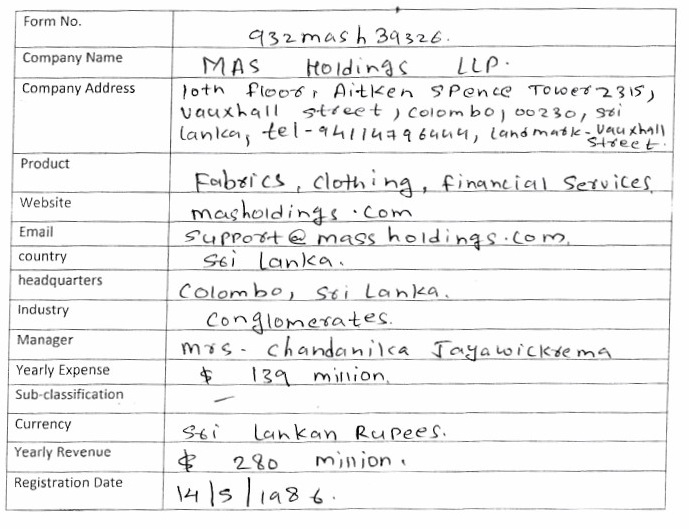 Form No.
932mash39326.
Company Name
MAS Holdings LLP.
Company Address
10th floor, Aitken Spence Tower 2315,
Vauxhall street, Colombo, 00230, Sri
Lanka, tel-94114796444, landmark-Vauxhall
Street.
Product
Fabrics, clothing, financial Services,
Website
masholdings.com
Email
support@massholdings.com,
country
Sri Lanka.
headquarters
Colombo, Sri Lanka.
Industry
Conglomerates.
Manager
mrs. Chandanika Jayawickrema
Yearly Expense
$ 139 million.
Sub-classification
—
Currency
Sri Lankan Rupees.
Yearly Revenue
$ 280 million.
Registration Date
14/5/1986.